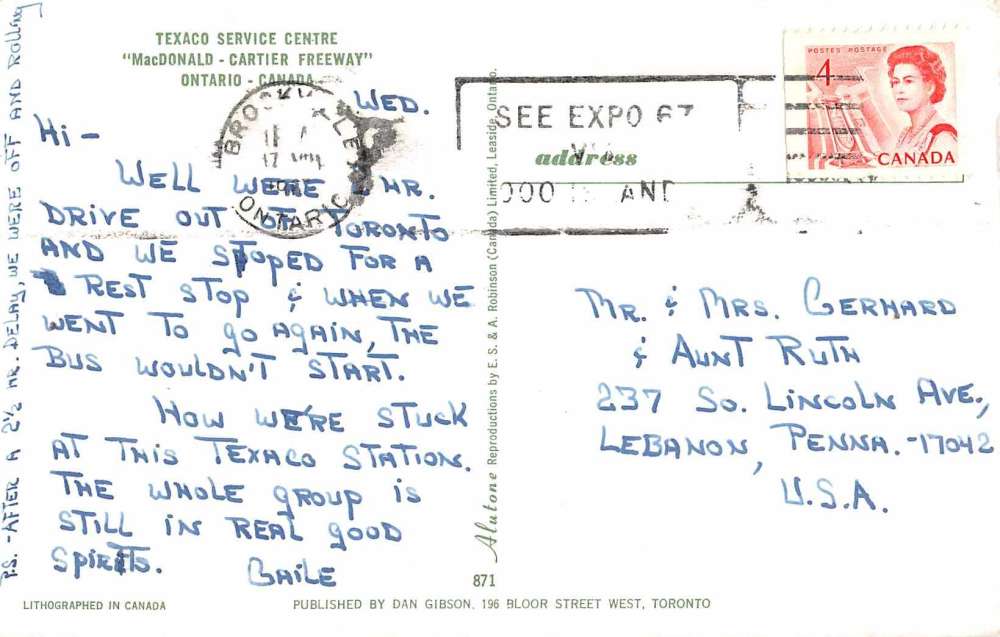 TEXACO SERVICE CENTRE
"MacDONALD - CARTIER FREEWAY"
ONTARIO - CANADA
WED.
Hi -
WELL WE'RE 2 HR.
DRIVE OUT OF TORONTO
AND WE STOPED FOR A
REST STOP & WHEN WE
WENT TO GO AGAIN, THE
BUS WOULDN'T START.
NOW WE'RE STUCK
AT THIS TEXACO STATION.
THE WHOLE GROUP IS
STILL IN REAL GOOD
SPIRITS.
GAILE
P.S. -AFTER A 2½ HR. DELAY, WE WERE OFF AND ROLLING
LITHOGRAPHED IN CANADA
BROCKVILLE
ONTARIO
SEE EXPO 67
VIA
AND
address
POSTES POSTAGE
4
CANADA
MR. & MRS. GERHARD
& AUNT RUTH
237 SO. LINCOLN AVE.,
LEBANON, PENNA. -17042
U.S.A.
Alutone Reproductions by E. S. & A. Robinson (Canada) Limited, Leaside, Ontario.
871
PUBLISHED BY DAN GIBSON, 196 BLOOR STREET WEST, TORONTO